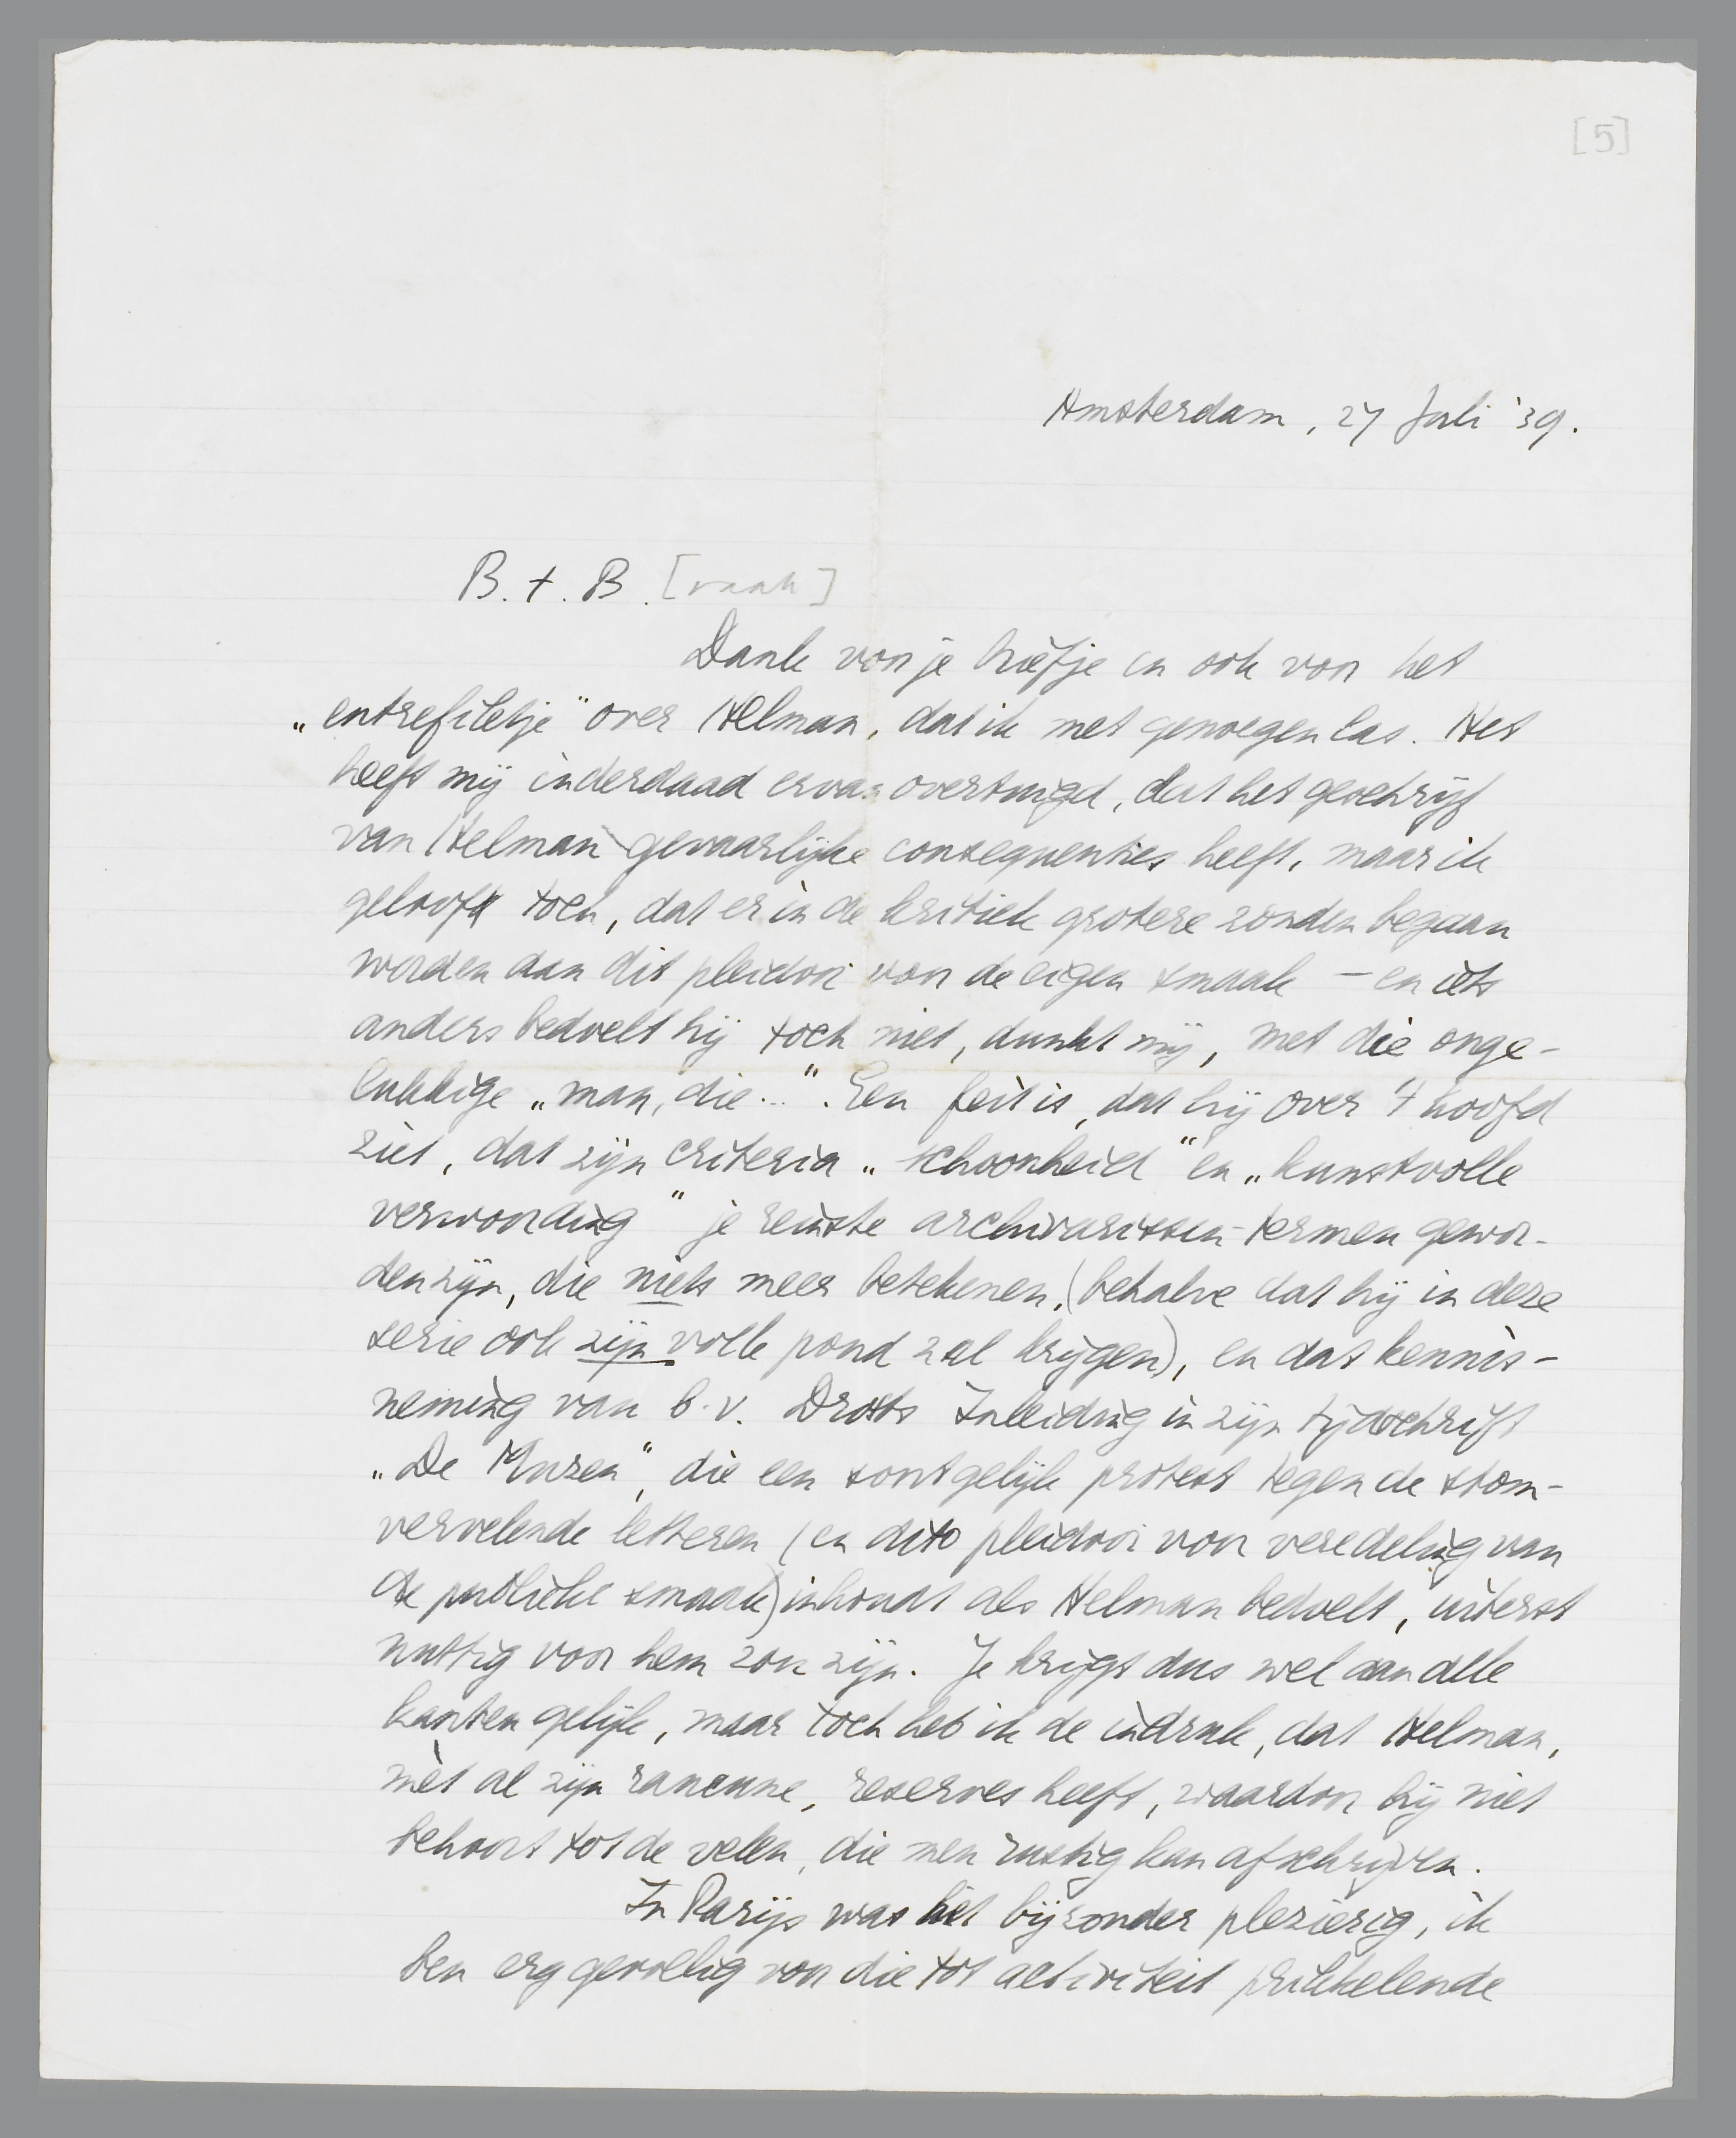 [5]
Amsterdam, 27 Juli '39.
B. t. B. [raak]
Dank voor je briefje en ook voor het
„entrefiletje" over Helman, dat ik met genoegen las. Het
heeft mij inderdaad ervan overtuigd, dat het geschrijf
van Helman gevaarlijke consequenties heeft, maar ik
geloof toch, dat er in de kritiek grotere zonden begaan
worden dan dit pleidooi voor de eigen smaak — en iets
anders bedoelt hij toch niet, dunkt mij, met die onge-
lukkige „man, die...". Een feit is, dat hij over 't hoofd
ziet, dat zijn criteria „schoonheid" en „kunstvolle
verwoording" je reinste archivarissen-termen gewor-
den zijn, die niets meer betekenen, (behalve dat hij in deze
serie ook zijn volle pond zal krijgen), en dat kennis-
neming van b.v. Drosts Inleiding in zijn tijdschrift
„De Muzen", die een soortgelijk protest tegen de stom-
vervelende letteren (en dito pleidooi voor veredeling van
de publieke smaak) inhoudt als Helman bedoelt, uiterst
nuttig voor hem zou zijn. Je krijgt dus wel aan alle
kanten gelijk, maar toch heb ik de indruk, dat Helman,
mèt al zijn rancune, reserves heeft, waardoor hij niet
behoort tot de velen, die men rustig kan afschrijven.
In Parijs was het bijzonder plezierig, ik
ben erg gevoelig voor die tot activiteit prikkelende